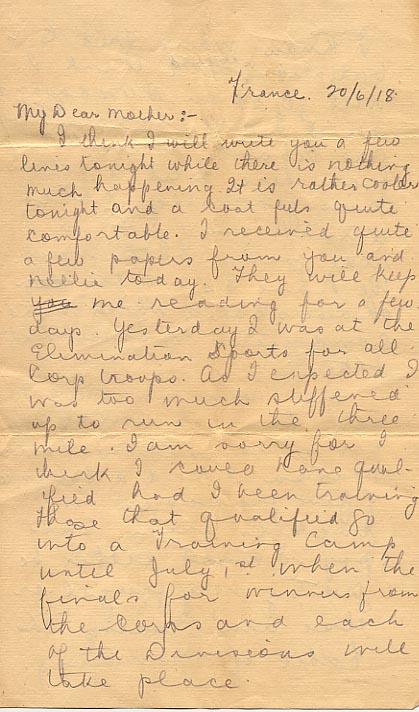 France. 20/6/18.
My Dear Mother:-
I think I will write you a few
lines tonight while there is nothing
much happening. It is rather cooler
tonight and a coat feels quite
comfortable. I received quite
a few papers from you and
Nellie today. They will keep
you me reading for a few
days. Yesterday I was at the
Elimination Sports for all
Corp troops. As I expected I
was too much stiffened
up to run in the three
mile. I am sorry for I
think I could have qual-
ified had I been training
Those that qualified go
into a Training Camp
until July 1st when the
finals for winners from
the Corps and each
of the Divisions will
take place.